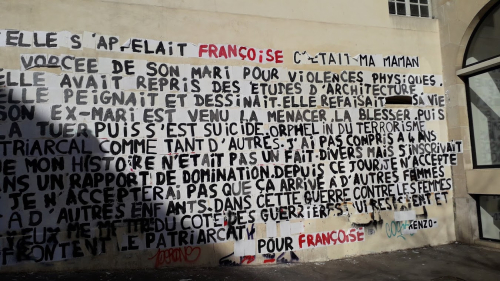 ELLE S'APPELAIT FRANÇOISE C'ÉTAIT MA MAMAN
VORCÉE DE SON MARI POUR VIOLENCES PHYSIQUES.
ELLE AVAIT REPRIS DES ETUDES D'ARCHITECTURE.
ELLE PEIGNAIT ET DESSINAIT.ELLE REFAISAIT SA VIE
SON EX-MARI EST VENU LA MENACER, LA BLESSER, PUIS
LA TUER PUIS S'EST SUICIDÉ. ORPHELIN DU TERRORISME
TRIARCAL COMME TANT D'AUTRES. J'AI PAS COMPRIS À 4 ANS
QUE MON HISTOIRE N'ÉTAIT PAS UN FAIT-DIVERS MAIS S'INSCRIVAIT
ANS UN RAPPORT DE DOMINATION.DEPUIS CE JOUR,JE N'ACCEPTE
JE N'ACCEPTERAI PAS QUE ÇA ARRIVE À D'AUTRES FEMMES
À D'AUTRES ENFANTS. DANS CETTE GUERRE CONTRE LES FEMMES
VEUX ME METTRE DU CÔTÉ DES GUERRIÈRES QUI RÉSISTENT ET
FRONTENT LE PATRIARCAT RENZO-
POUR FRANÇOISE